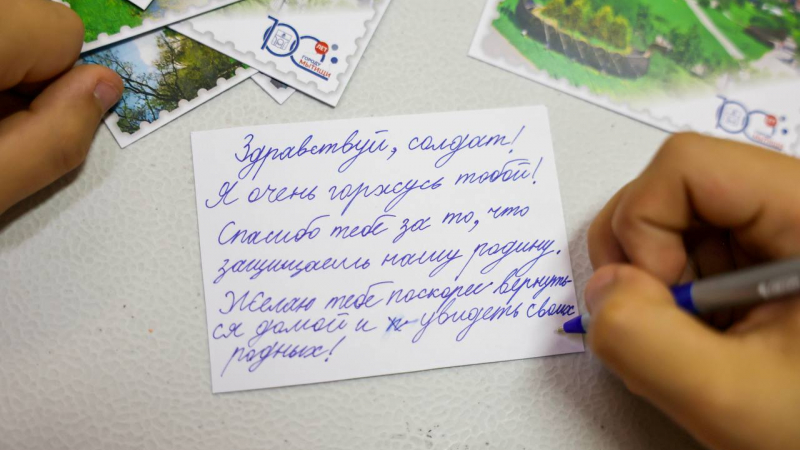 100
ЛЕТ
ГОРОДУ
МЫТИЩИ
Здравствуй, солдат!
Я очень горжусь тобой!
Спасибо тебе за то, что
защищаешь нашу родину.
Желаю тебе поскорее вернуть-
ся домой и увидеть своих
родных!